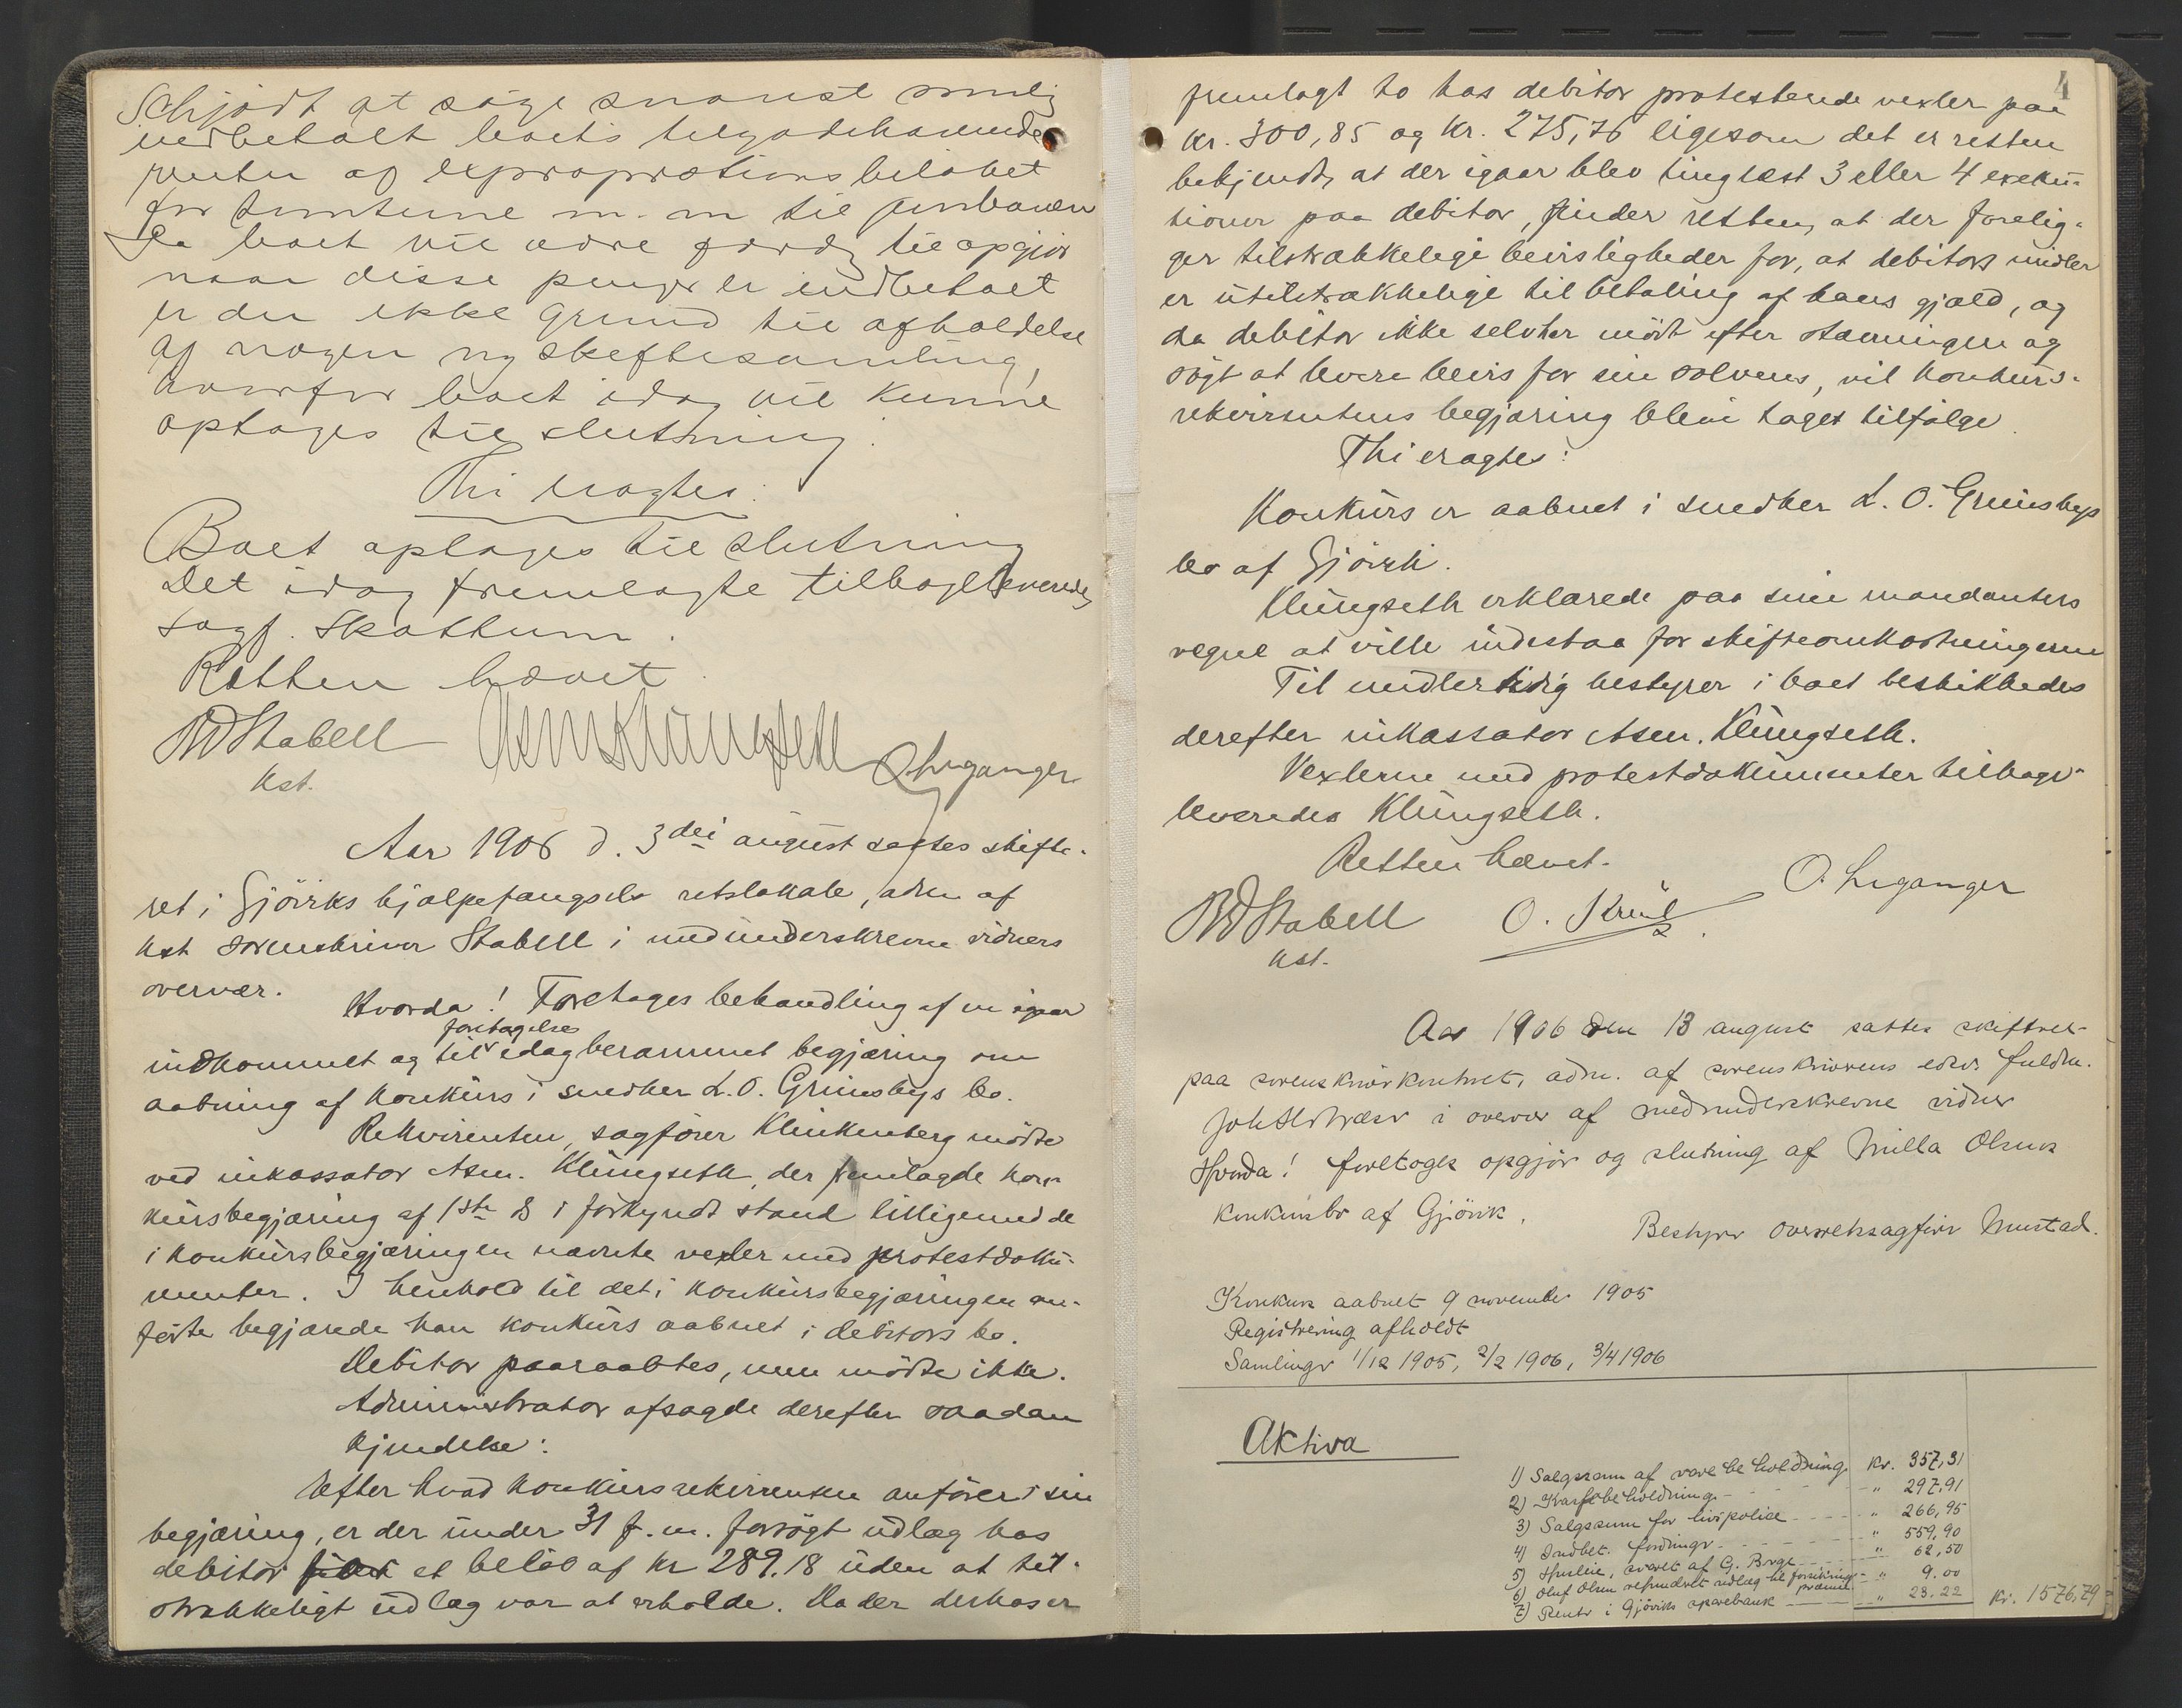 Schjødt at søge snarest mulig
indbetalt boets tilgodehavende
renter af expropriationsbeløbet
for tomterne m. m til jernbanen
Da boet vil være færdig til opgjør
naar disse penger er indbetalt
er der ikke grund til afholdelse
af nogen ny skiftesamling,
hvorfor boet idag vil kunne
optages til slutning.
Thi eragtes:
Boet optages til slutning
Det idag fremlagte tilbageleveredes
sagf. Skattum.
Retten hævet.
BWStabell Asm Klüngseth O Leganger
kst.
Aar 1906 d. 3dei august sattes skifte-
ret i Gjøviks hjælpefængsels retslokale, adm af
kst sorenskriver Stabell i medunderskrevne vidners
overvær.
Hvorda! Foretages behandling af en igaar
foretagelse
indkommet og til idag berammet begjæring om
aabning af konkurs i snedker L. O. Grimsbys bo.
Rekvirenten, sagfører Klinkenberg mødte
ved inkassator Asm. Klüngseth, der fremlagde kon-
kursbegjæring af 1ste ds i forkyndt stand tilligemed de
i konkursbegjæringen nævnte vexler med protestdoku-
menter. I henhold til det i konkursbegjæringen an-
førte begjærede han konkurs aabnet i debitors bo.
Debitor paaraabtes, men mødte ikke.
Administrator afsagde derefter saadan
kjendelse:
Efter hvad konkursrekvirenten anfører i sin
begjæring, er der under 31 f. m. forsøgt udlæg hos
debitor for et beløb af kr 289.18 uden at til-
strækkeligt udlæg var at erholde. Da der derhos er
4
fremlagt to hos debitor protesterede vexler paa
kr. 300,85 og kr. 275,76 ligesom det er retten
bekjendt, at der igaar blev tinglæst 3 eller 4 exeku-
tioner paa debitor, finder retten, at der forelig-
ger tilstrækkelige beviseligheder for, at debitors midler
er utilstrækkelige til betaling af hans gjæld, og
da debitor ikke selv har mødt efter stævningen og
søgt at levere bevis for sin solvens, vil konkurs-
rekvirentens begjæring blive taget tilfølge.
Thi eragtes:
Konkurs er aabnet i snedker L. O. Grimsbys
bo af Gjøvik.
Klüngseth erklærede paa sine mandanters
vegne at ville indestaa for skifteomkostningerne
Til midlertidig bestyrer i boet beskikkedes
derefter inkassator Asm. Klüngseth.
Vexlerne med protestdokumenter tilbage-
leveredes Klüngseth.
Retten hævet.
BWStabell O. Krül O. Leganger
kst.
Aar 1906 den 13 august sattes skifteret
paa sorenskriverkontoret, adm. af sorenskriverens edsv. fuldm.
i overvær af medunderskrevne vidner
Hvorda! foretoges opgjør og slutning af Milla Olsens
konkursbo af Gjøvik.
Bestyrer overretssagfører Mustad.
Konkurs aabnet 9 november 1905
Registrering afholdt
Samlinger 1/12 1905, 2/2 1906, 3/4 1906
Aktiva
1) Salgssum af varebeholdning kr. 357,31
2) Kassebeholdning " 297,91
3) Salgssum for livspolice " 266,95
4) Indbet. fordringer " 559,90
5) Husleie, svaret af G. Berge " 62,50
6) Oluf Olsen refunderet udlæg til forsikringspræmie " 9.00
7) Renter i Gjøviks sparebank " 23.22 kr. 1576,79